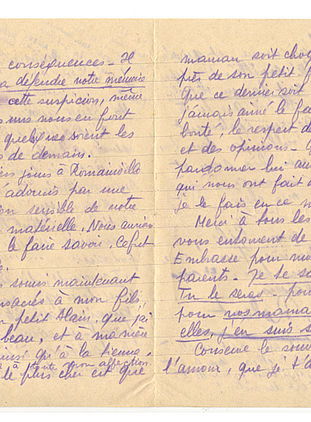 conséquences – Il
a défendre notre mémoire
cette suspicion, même
nous en font
quelques soient les
de demain.
jours à Romainville
adoucis par une
on sensible de notre
matérielle. Nous aurions
le faire savoir. Ce fut
sont maintenant
consacrés à mon fils,
petit Alain, que j'ai
beau, et à ma mère
ainsi qu'à la tienne.
toute mon affection
le plus cher est que
maman soit
près de son petit
Que ce dernier soit
jamais aimé le
bonté, le respect d
et des opinions – 
pardonner lui au
qui nous ont fait
je le fais en ce m
Merci à tous les
vous entourent de
Embrasse pour mo
parents – Je te s
Tu le seras – pou
pour nos mama
elles, j'en suis s
Conserve le souv
l'amour, que je t'a